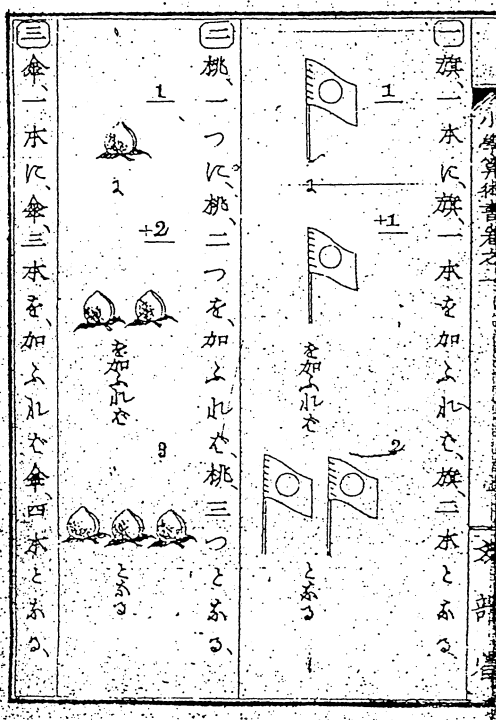 小學算術書卷之一
文部省
一 旗、一本に、旗、一本を、加ふれば、旗、二本となる、
1
に
+1
を加ふれば
2
となる
二 桃、一つに、桃、二つを、加ふれば、桃、三つとなる、
1
に
+2
を加ふれば
3
となる
三 傘、一本に、傘、三本を、加ふれば、傘、四本となる、